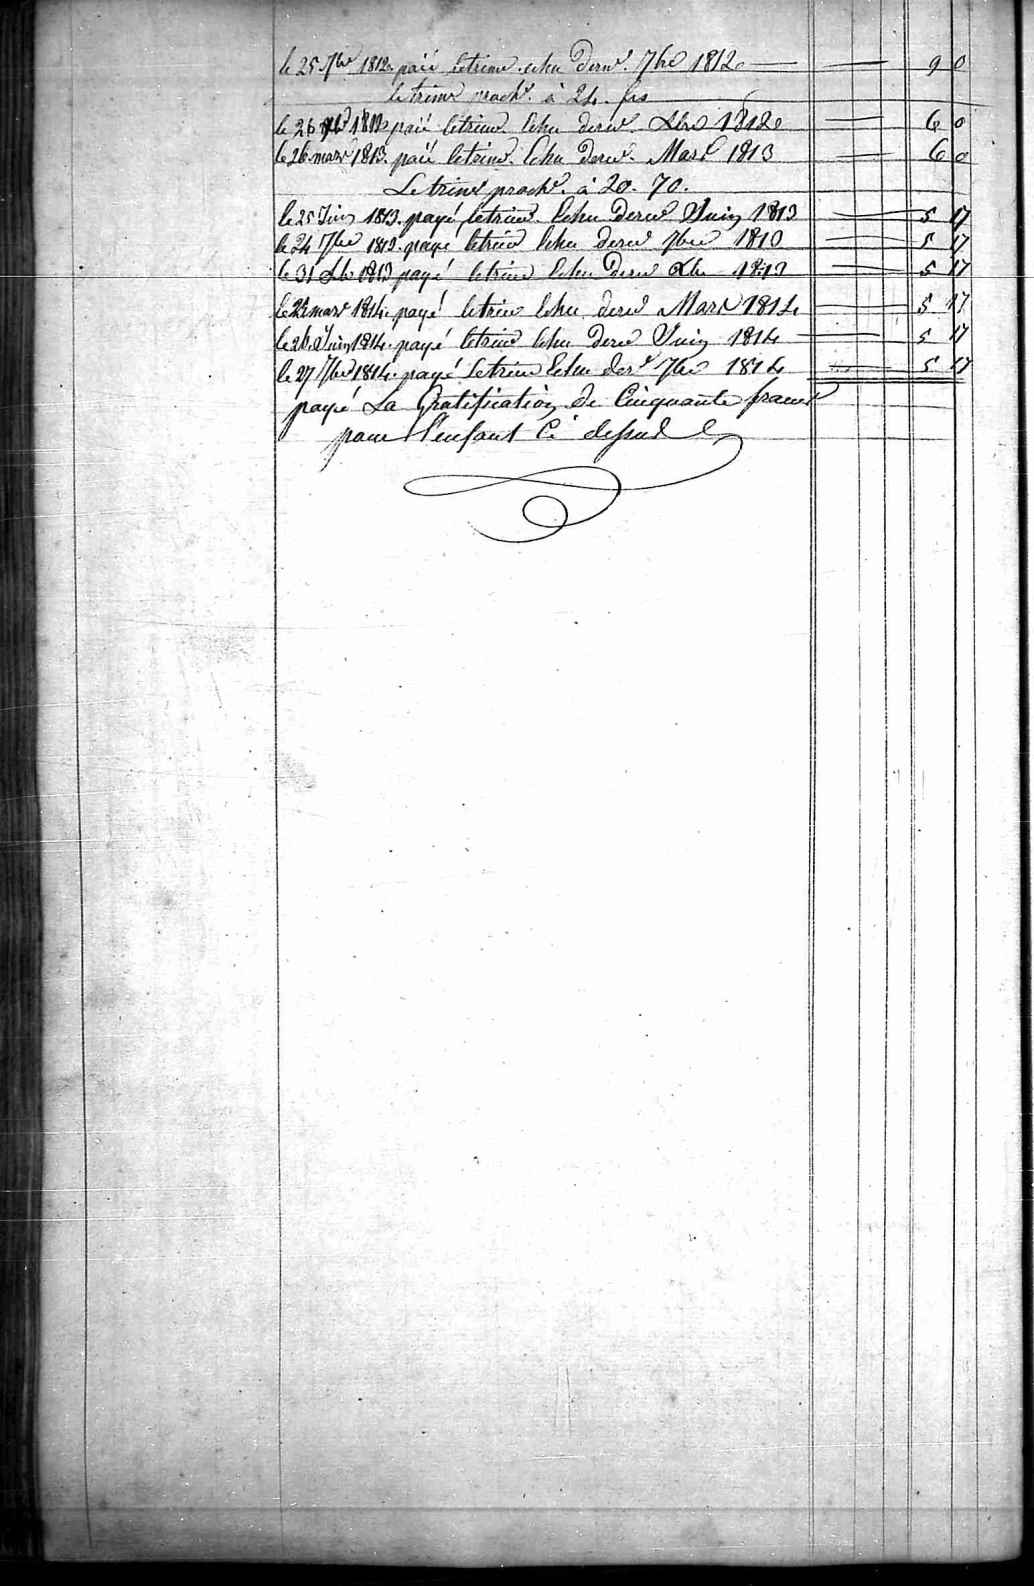 le 25 7bre 1812 païé le trime echu dernr. 7bre 1812 9 0
le trime prochr. à 24. frs
le 26 1812 païé le trime. Echu dernr. Xbre 1812 6 0
le 26 mars 1813. païé le trime. Echu dernr. Mars 1813 6 0
Le trime prochr. à 20. 70.
le 25 Juin 1813. payé le trime. Echu Dernr Juin 1813 5 17
le 24 7bre 1813. payé le trime Echu dernr 7bre 1813 5 17
le 31 Xbre 1813 payé le trime Echu Dernr Xbre 1813 5 17
le mars 1814. payé le trime Echu dernr Mars 1814 5 17
le 26 Juin 1814. payé le trime Echu Dernr Juin 1814 5 17
le 27 7bre 1814. payé le trime Echu der.r 7bre 1814 5 17
payé La Gratification de Cinquante francs
pour l'enfant Ci dessus